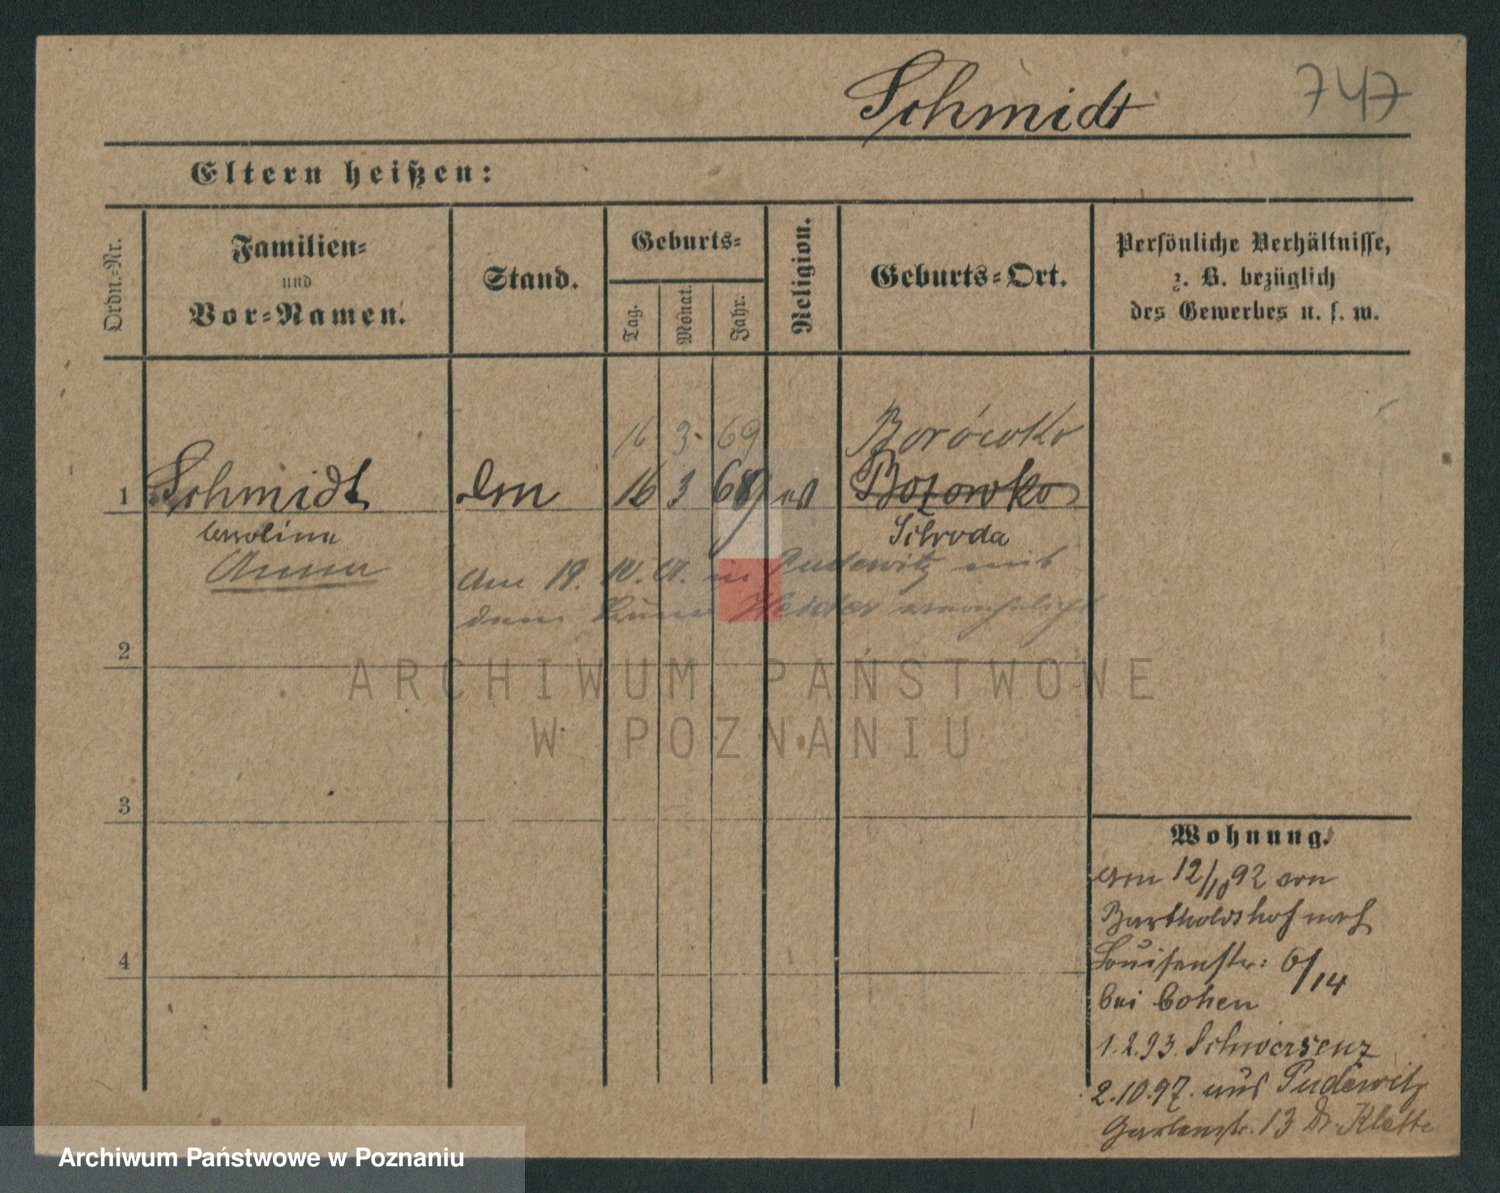 Schmidt 747
Eltern heißen:
Ordn.-Nr.
Familien-
und
Vor-Namen.
Stand.
Geburts-
Tag.
Monat.
Jahr.
Religion.
Geburts-Ort.
Persönliche Verhältnisse,
z. B. bezüglich
des Gewerbes u. s. w.
16 3. 69 Borówko
1 Schmidt 16 3 ev Borowko
Carolina Schroda
Anna
am 19. in Pudewitz mit
dem verehelicht
2
3
4
Wohnung.
am 12/10 92 von
Bartholdshof nach
Louisenstr: 6/14
bei Cohen
1.2.93. Schwersenz
2.10.97. aus Pudewitz
Gartenstr. 13 Dr. Klette
ARCHIWUM PAŃSTWOWE
W POZNANIU
Archiwum Państwowe w Poznaniu